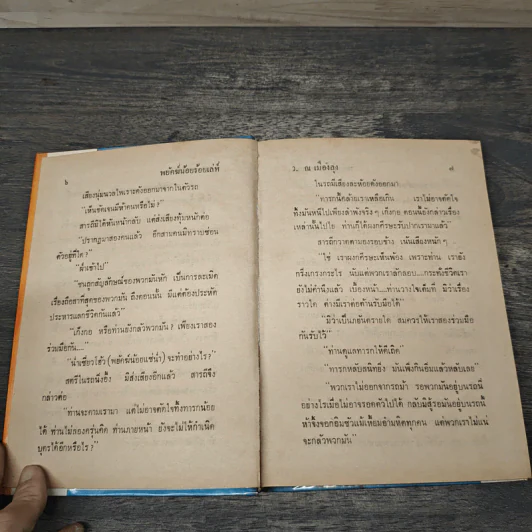 ๖
พยัคฆ์น้อยจ้อยเล่ห์
เสียงนุ่มนวลไพเราะดังออกมาจากในตัวรถ
“เห็นชัดเจนมีหัวคนหรือไม่ ?”
สารถีมิได้หันหน้ากลับ แต่ส่งเสียงทุ้มหนักต่อ
“ปรากฏมาสองคนแล้ว อีกสามคนมิทราบซ่อน
ตัวอยู่ที่ใด ?”
“ฝ่าเข้าไป”
“ชนถูกสัญลักษณ์ของพวกมันหัก เป็นการละเมิด
เรื่องถือสาที่สุดของพวกมัน ถึงตอนนั้น มีแต่ต้องประหัต
ประหารแลกชีวิตกันแล้ว”
“เก้งกอย หรือท่านยังกลัวพวกมัน ? เพียงเราสอง
ร่วมมือกัน....”
(พยัคฆ์น้อยแซ่นํ้า) จะทำอย่างไร ?”
สตรีในรถนิ่งอึ้ง มิส่งเสียงอีกแล้ว สารถีจึง
กล่าวต่อ
“ท่านจะตามเรามา แต่ไม่อาจตัดใจทิ้งทารกน้อย
ได้ ท่านไม่ลองครุ่นคิด ท่านภายหน้า ยังจะไม่ให้กำเนิด
บุตรได้อีกหรือไร ?”
ว. ณ เมืองลุง
๗
ในรถมีเสียงละห้อยดังออกมา
“ทารกนี้คล้ายเราเหลือเกิน เราไม่อาจตัดใจ
ทิ้งมันหนีไปเพียงลำพังจริง ๆ เก้งกอย ตอนนี้ยังกล่าวเรื่อง
เหล่านั้นไปไย ท่านก็ได้ผงกศีรษะรับปากเรามาแล้ว
สารถีกวาดตามองรอบข้าง เน้นเสียงหนัก ๆ
“ใช่ เราผงกศีรษะเห็นพ้อง เพราะท่าน เรายัง
กริ่งเกรงกระไร นับแต่พวกเราลักลอบ....กระทั่งชีวิตเรา
ยังไม่คำนึงแล้ว เบื้องหน้า....ท่านวางใจเต็มที่ มิว่าเรื่อง
ราวใด ต่างมีเราต่อต้านรับมือได้”
มิว่าเป็นภยันตรายใด สมควรให้เราสองร่วมมือ
กันรับไว้”
“ท่านดูแลทารกให้ดีเถิด”
“ทารกหลับสนิทยิ่ง มันเพิ่งกินอิ่มแล้วหลับเลย”
“พวกเราไม่ออกจากรถม้า รอพวกมันอยู่บนรถนี้
อย่างไรเมื่อไม่อาจรอดตัวไปได้ กลับมิสู้รอมันอยู่บนรถนี้
ห้าจึ้งจอกยิมซัวแม้เหี้ยมอำมหิตทุกคน แต่พวกเราไม่แน่
จะกลัวพวกมัน”